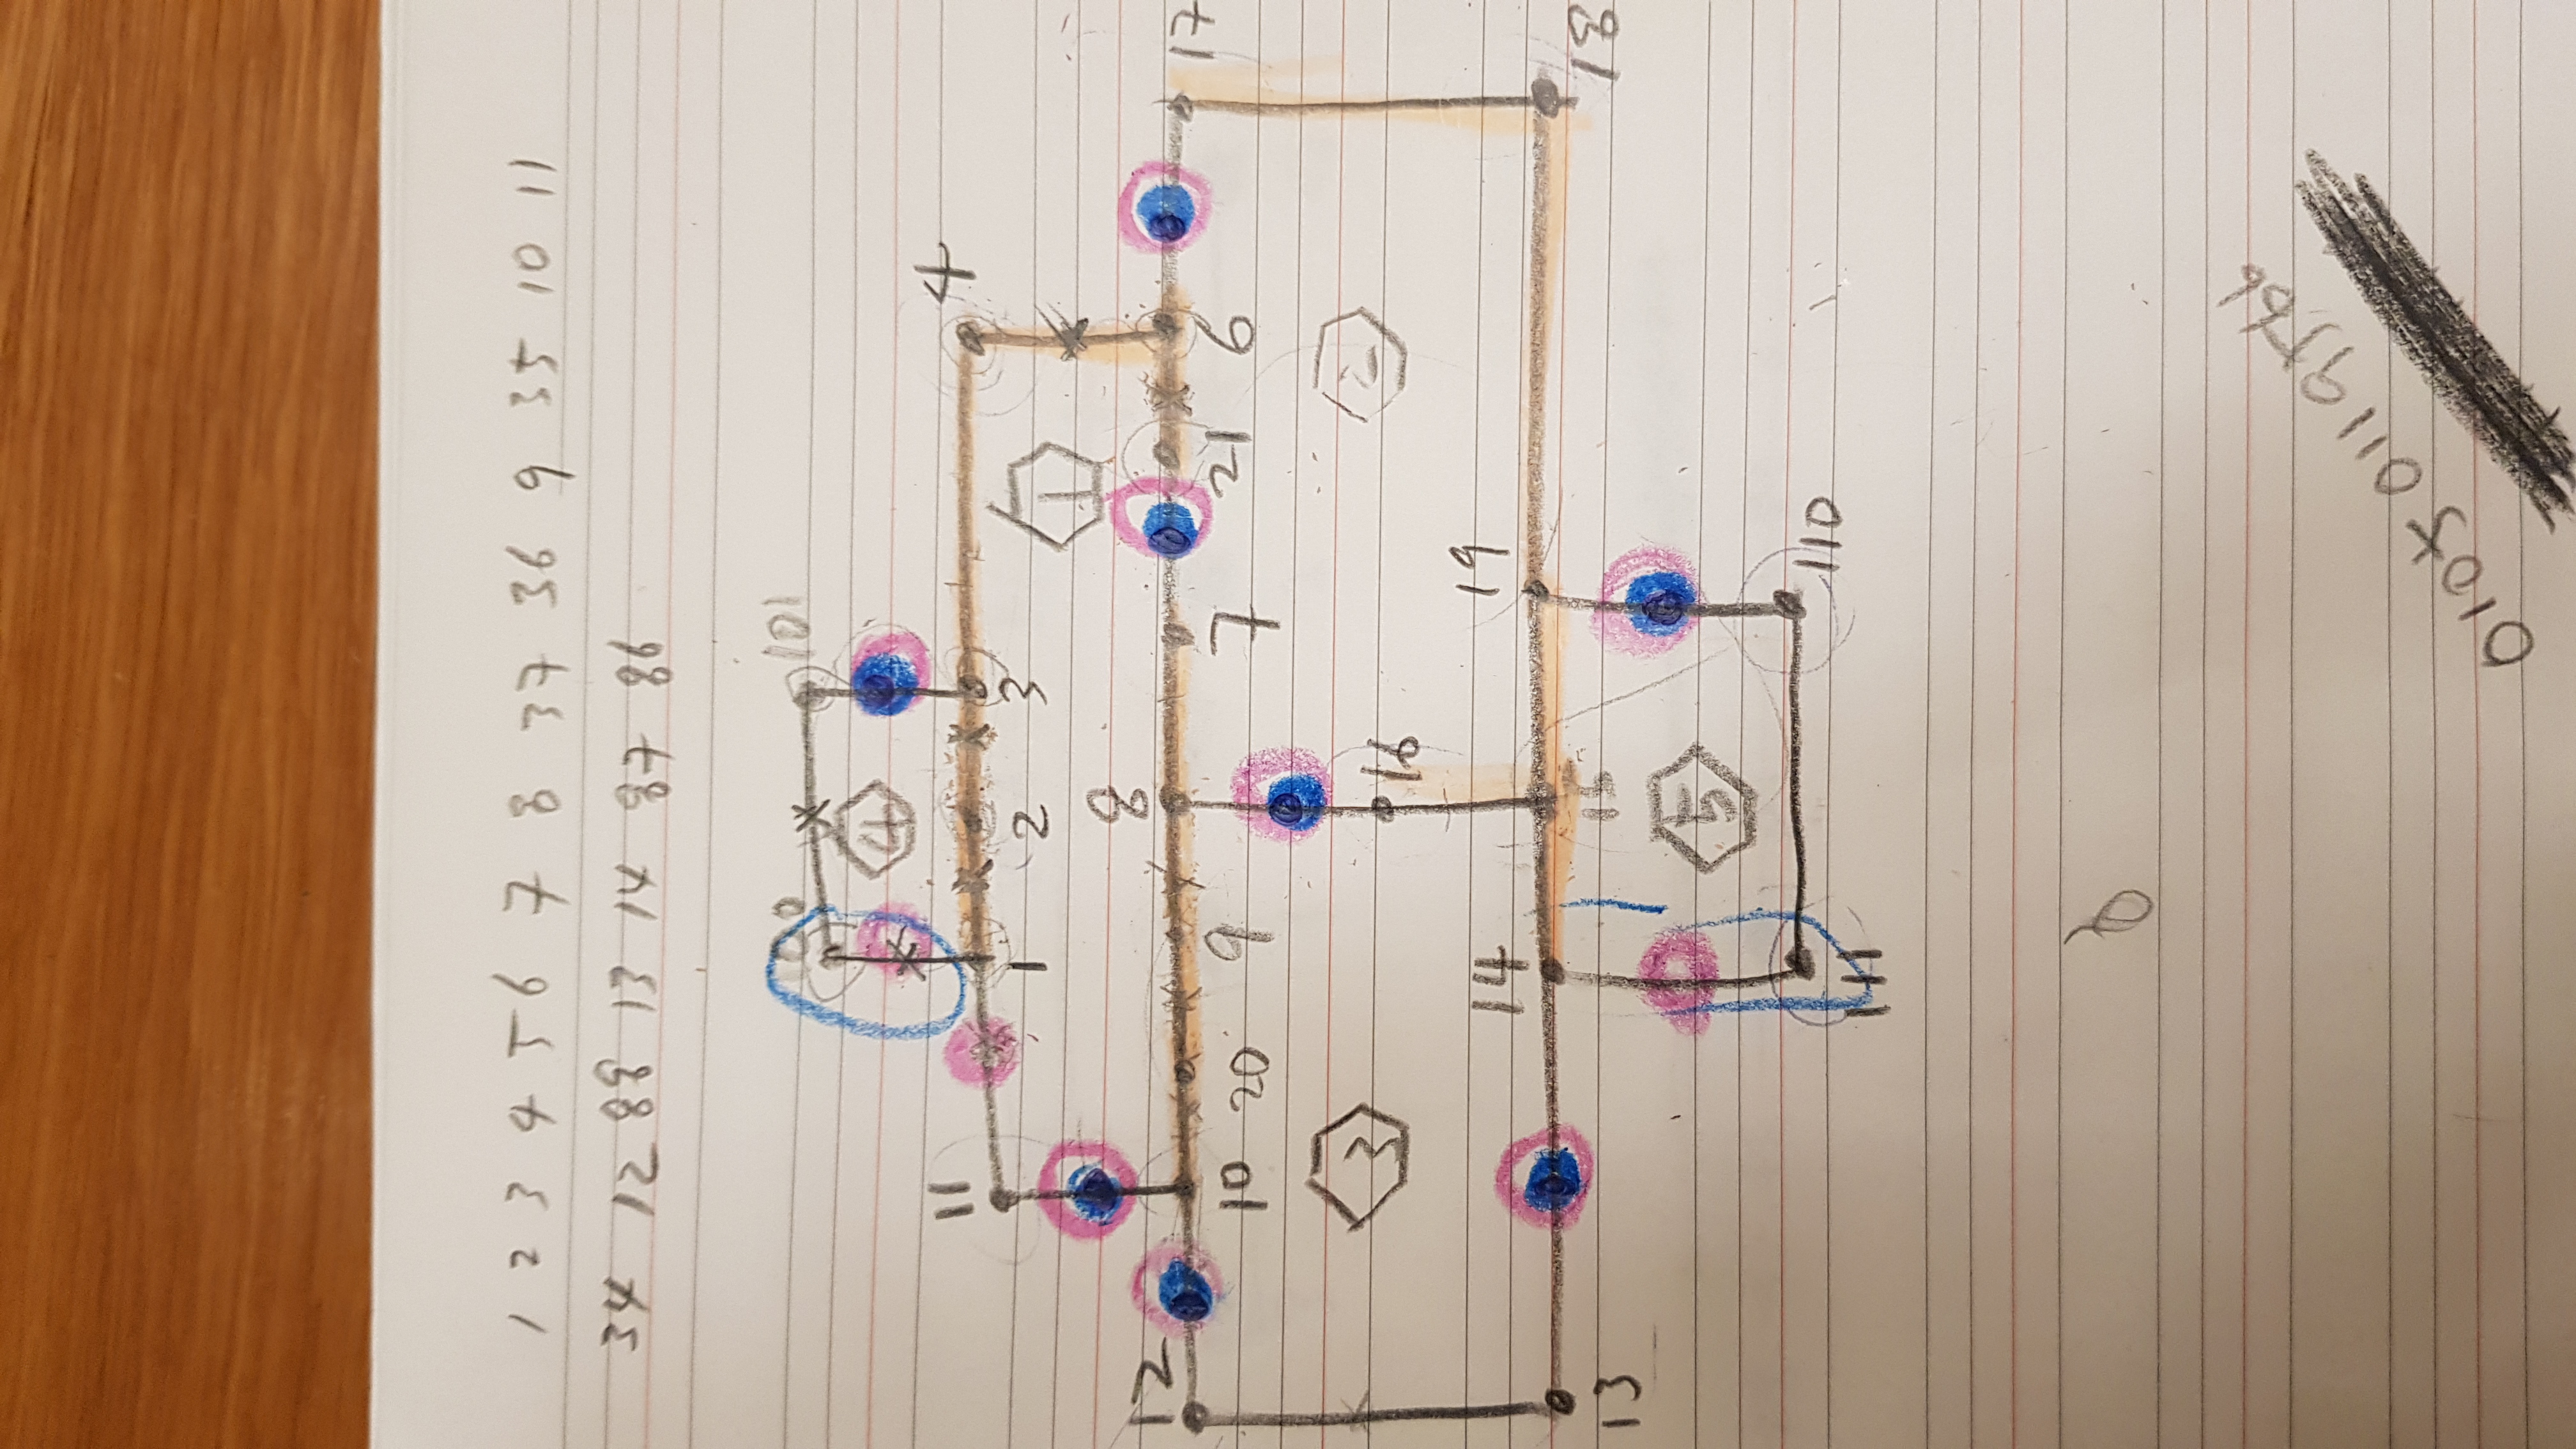 1 2 3 4 5 6 7 8 37 36 9 35 10 11
34 12 88 13 14 87 86
100 101
4
11 4
1 2 3
1
8
12 17
10 20 9 7 21 6
3 16 2
14 19
15
13 18
5
111 110
8
01050119566